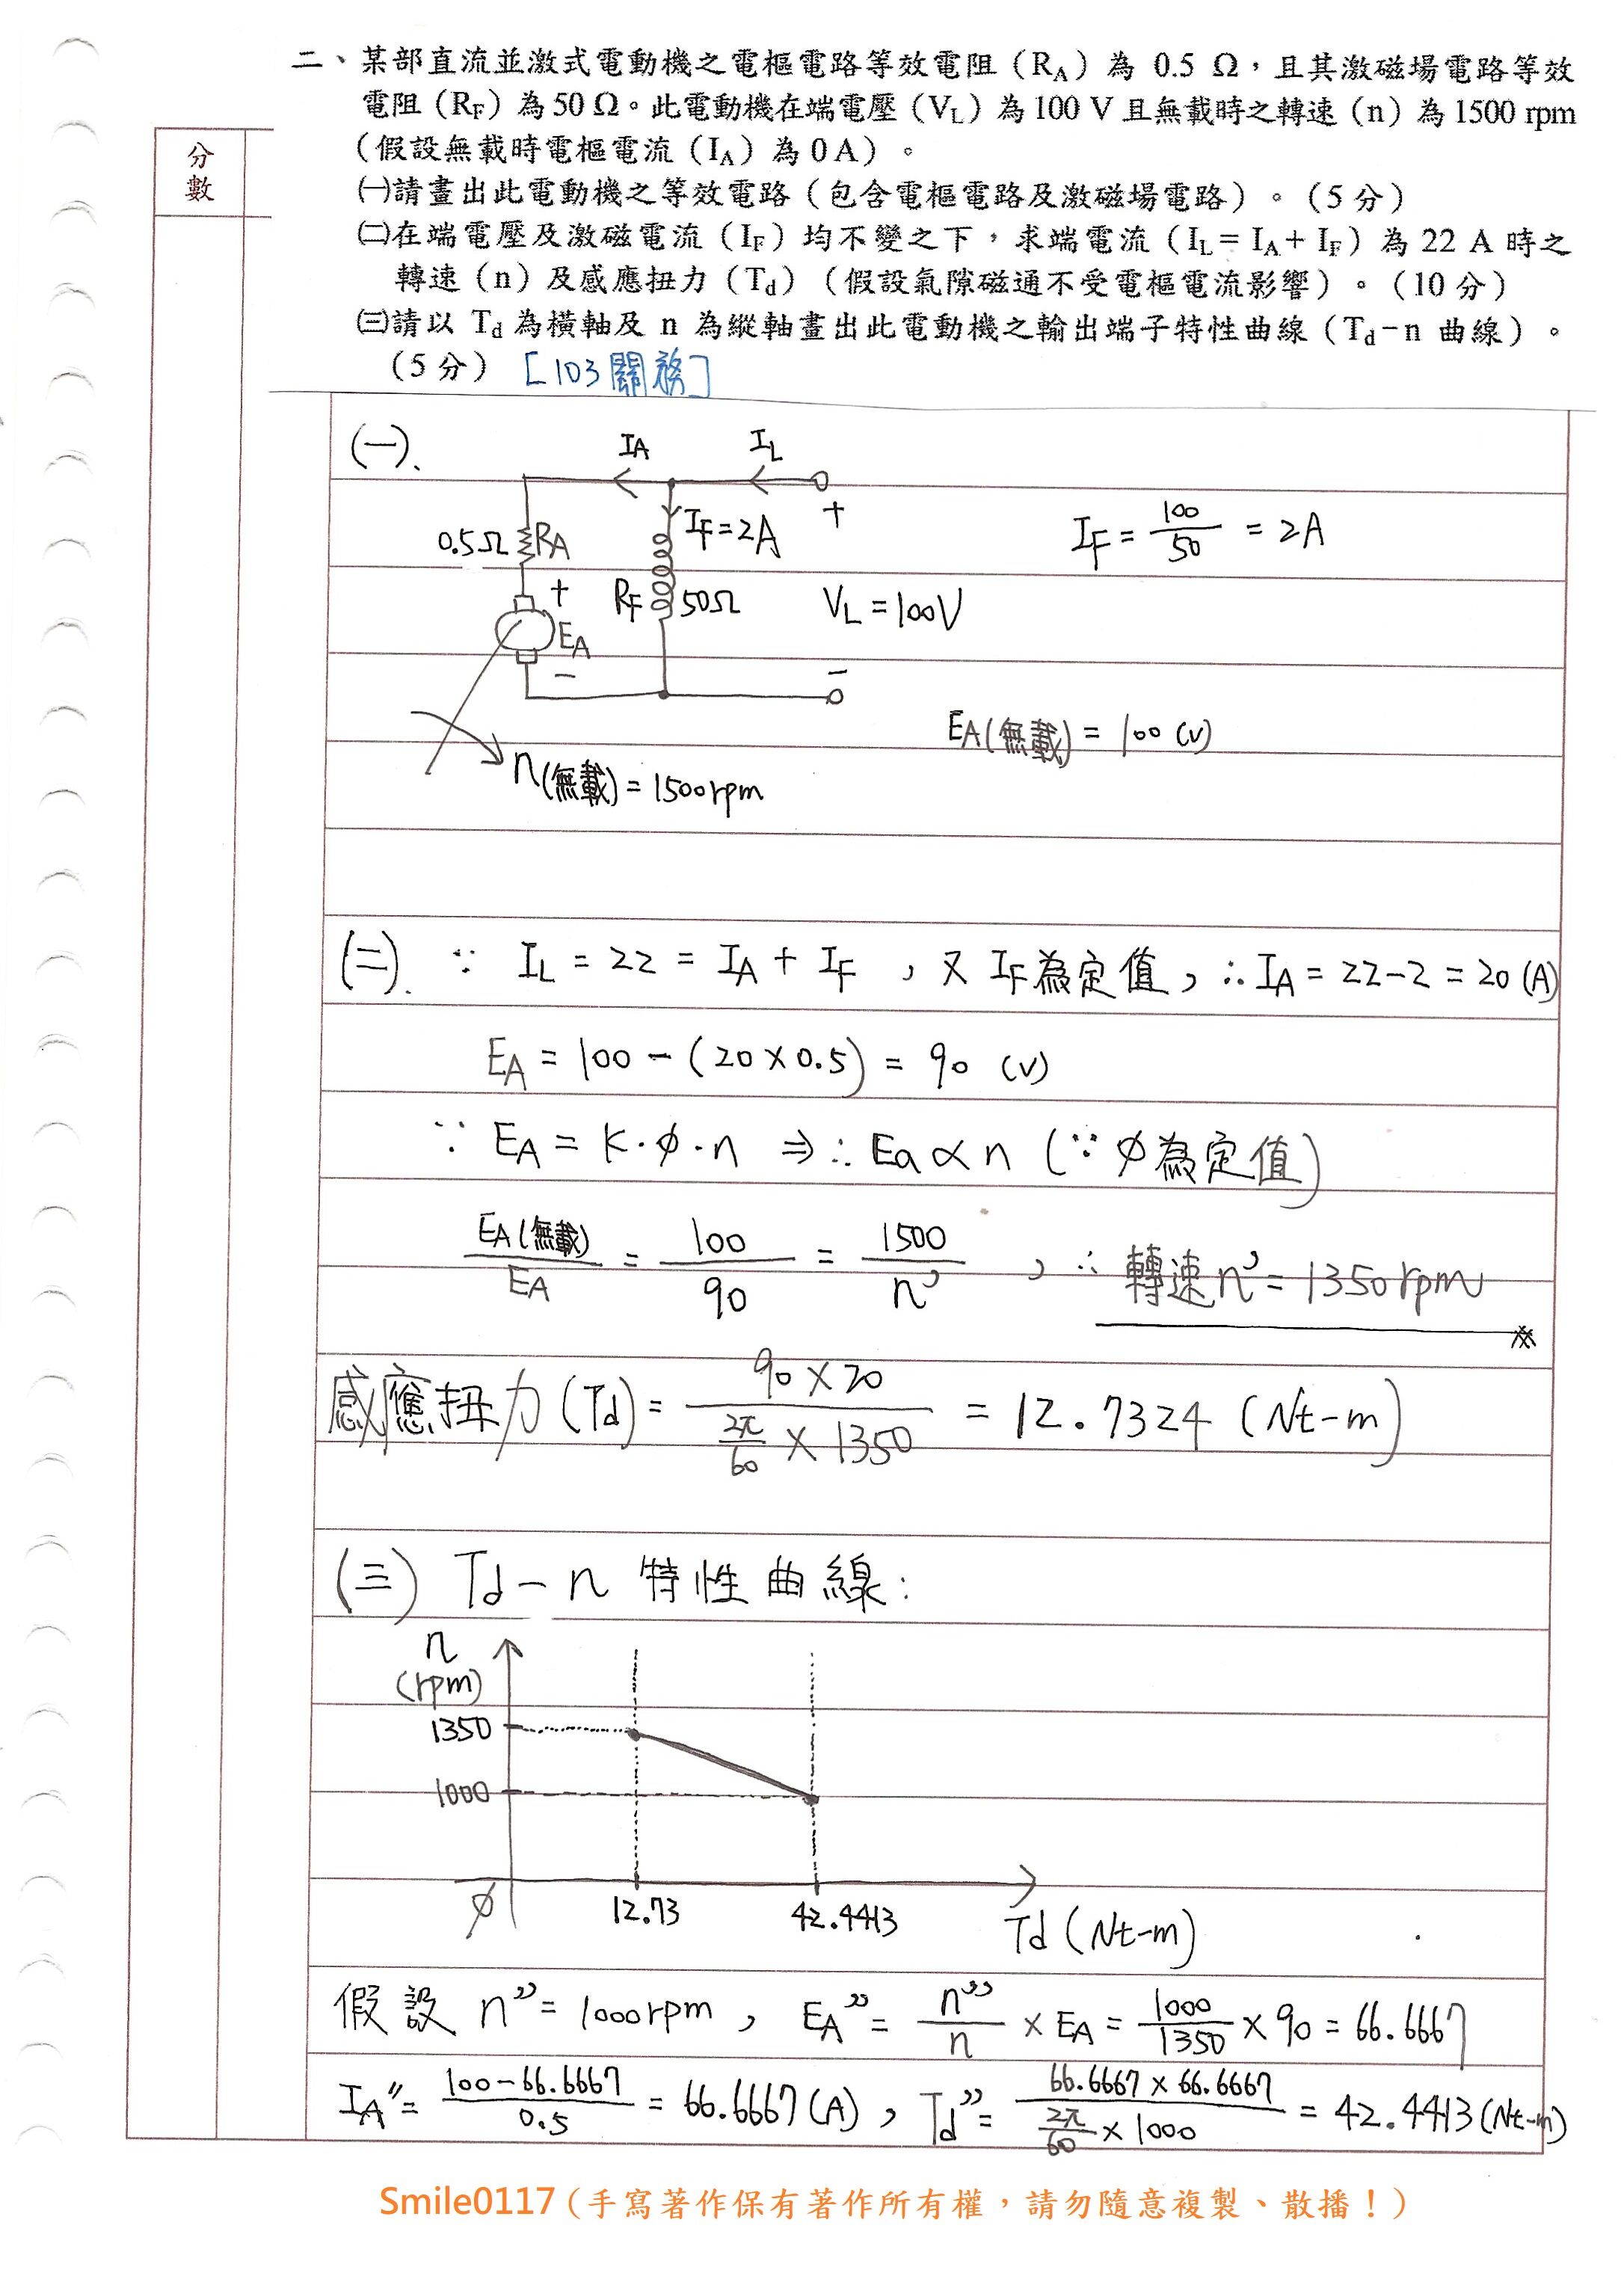 二、某部直流並激式電動機之電樞電路等效電阻（RA）為 0.5 Ω，且其激磁場電路等效
電阻（RF）為 50 Ω。此電動機在端電壓（VL）為 100 V 且無載時之轉速（n）為 1500 rpm
（假設無載時電樞電流（IA）為 0 A）。
㈠請畫出此電動機之等效電路（包含電樞電路及激磁場電路）。（5 分）
㈡在端電壓及激磁電流（IF）均不變之下，求端電流（IL = IA + IF）為 22 A 時之
轉速（n）及感應扭力（Td）（假設氣隙磁通不受電樞電流影響）。（10 分）
㈢請以 Td 為橫軸及 n 為縱軸畫出此電動機之輸出端子特性曲線（Td－n 曲線）。
（5 分）[103關務]
分數
(一).
IA
IL
+
IF=2A
0.5Ω RA
IF = 100/50 = 2A
+
RF 50Ω
VL = 100V
EA
−
−
EA(無載) = 100 (V)
n(無載) = 1500rpm
(二). ∵ IL = 22 = IA + IF ，又 IF為定值，∴IA = 22-2 = 20 (A)
EA = 100 - (20×0.5) = 90 (V)
∵ EA = K·φ·n ⇒ ∴ Ea∝n (∵ φ為定值)
EA(無載)/EA = 100/90 = 1500/n' ，∴ 轉速n' = 1350rpm
感應扭力(Td) = 90×20 / (2π/60 × 1350) = 12.7324 (Nt-m)
(三) Td-n 特性曲線:
n
(rpm)
1350
1000
0
12.73
42.4413
Td (Nt-m)
假設 n'' = 1000rpm，EA'' = n''/n × EA = 1000/1350 × 90 = 66.6667
IA'' = (100-66.6667)/0.5 = 66.6667(A)，Td'' = 66.6667×66.6667 / (2π/60 × 1000) = 42.4413(Nt-m)
Smile0117（手寫著作保有著作所有權，請勿隨意複製、散播！）